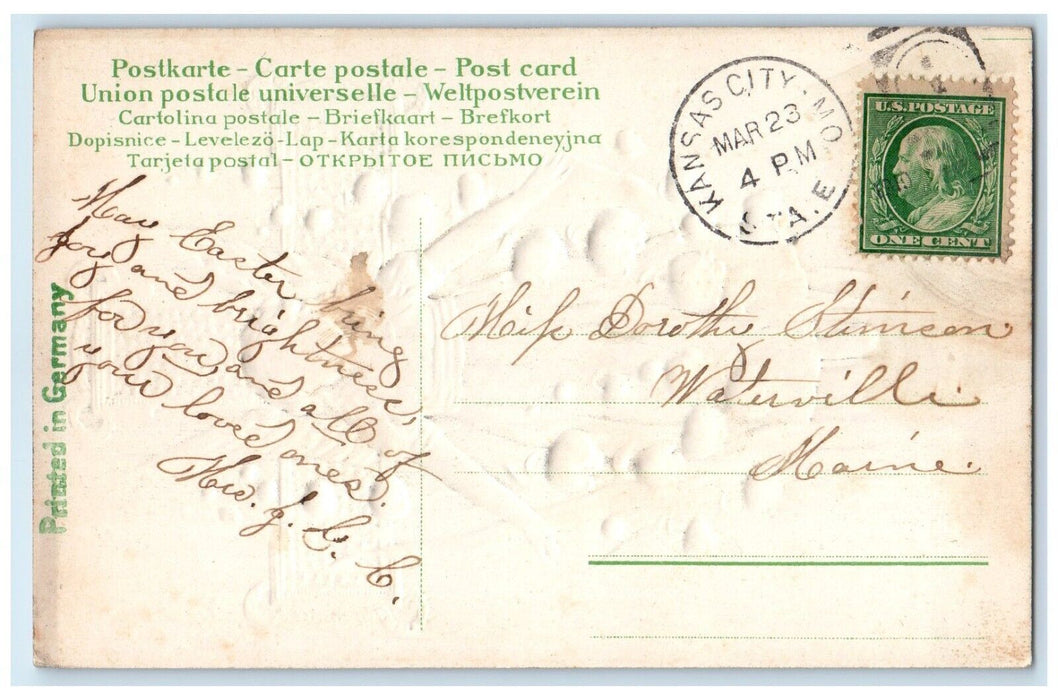 Postkarte – Carte postale – Post card
Union postale universelle – Weltpostverein
Cartolina postale – Briefkaart – Brefkort
Dopisnice – Levelezö-Lap – Karta korespondencyjna
Tarjeta postal – ОТКРЫТОЕ ПИСЬМО
KANSAS CITY. MO.
MAR 23
4 PM
STA. E
U.S. POSTAGE
ONE CENT
May Easter bring
joy and brightness,
for you, and all of
your loved ones.
Mrs. J. C. C.
Miss Dorothy Stimson
Waterville
Maine.
Printed in Germany